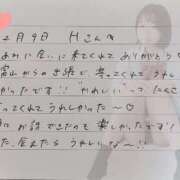 2月9日 Hさんへ
あれに会いに来てくれてありがとう
富山からの出張で、寄ってくれてうれし
かったです! "かわいい"って たくさ
ってくれてうれしかったな〜♡
お話できたのも楽しかったです!
た、会えたらうれしいな〜!!